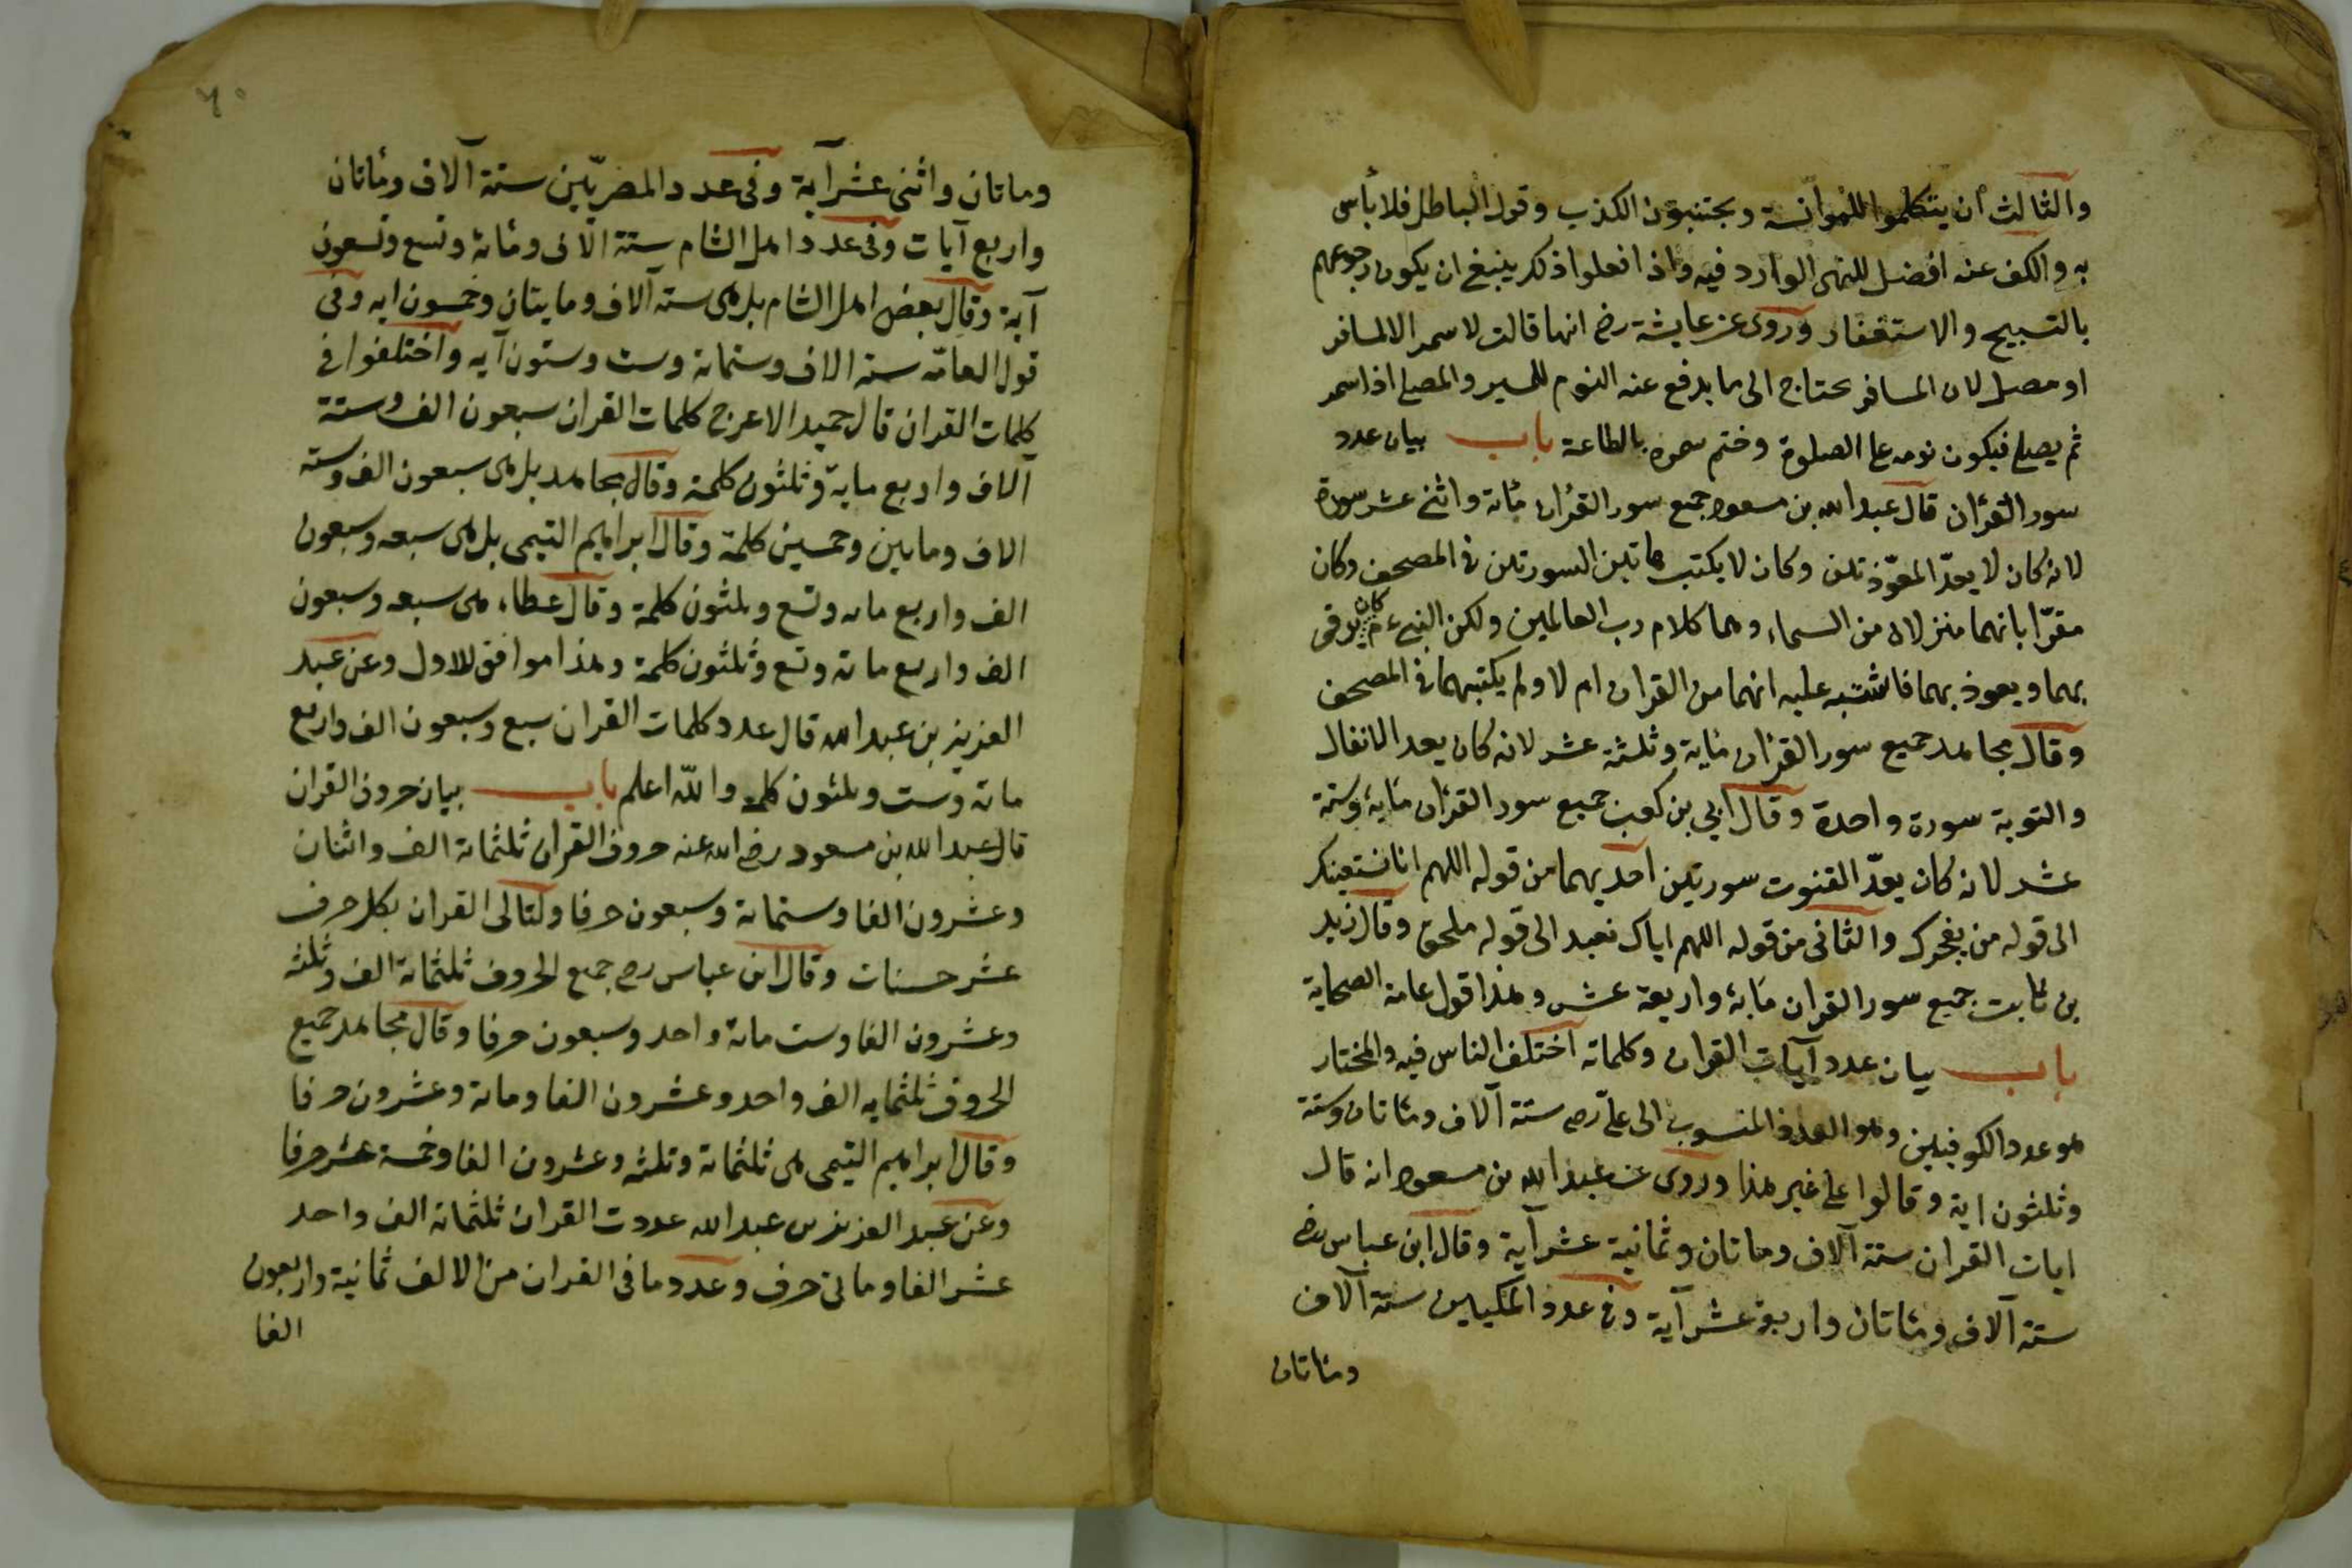 والثالث ان يتكلموا للموانسة ويجتنبون الكذب وقول الباطل فلا بأس
به والكف عنه افضل للنهى الوارد فيه واذا فعلوا ذلك ينبغى ان يكون رجوعهم
بالتسبيح والاستغفار وروى عن عايشة رضى انها قالت لا سمر الا لمسافر
او مصلى لان المسافر يحتاج الى ما يدفع عنه النوم للسير والمصلى اذا سمر
ثم يصلى فيكون نومه على الصلوة وختم سمره بالطاعة باب بيان عدد
سور القرآن قال عبد الله بن مسعود جميع سور القرآن مائة واثنى عشر سورة
لانه كان لا يعدّ المعوّذتين وكان لا يكتب هاتين السورتين فى المصحف وكان
مقرّا بانهما منزلان من السماء وهما كلام رب العالمين ولكن النبى ءم كان يرقى
بهما ويعوذ بهما فاشتبه عليه انهما من القران ام لا ولم يكتبهما فى المصحف
وقال مجاهد جميع سور القرآن مائة وثلثة عشر لانه كان يعد الانفال
والتوبة سورة واحدة وقال ابي بن كعب جميع سور القرآن مائة وستة
عشر لانه كان يعدّ القنوت سورتين احديهما من قوله اللهم انا نستعينك
الى قوله من يفجرك والثانى من قوله اللهم اياك نعبد الى قوله ملحق وقال زيد
بن ثابت جميع سور القران مائة واربعة عشر وهذا قول عامة الصحابة
باب بيان عدد آيات القران وكلماته اختلف الناس فيه والمختار
هو عدد الكوفيين وهو العدد المنسوب الى على رضى ستة آلاف ومئاتان وستة
وثلثون اية وقالوا على غير هذا وروى عن عبد الله بن مسعود انه قال
ايات القران ستة آلاف وماتان وثمانية عشر آية وقال ابن عباس رضى
ستة آلاف ومئاتان واربع عشر آية وفى عدد المكيين ستة آلاف
ومئاتان
٦٠
وماتان واثنى عشر آية وفى عدد المصريّين ستة آلاف ومئاتان
واربع آيات وفى عدد اهل الشام ستة الآف ومائة وتسع وتسعون
آية وقال بعض اهل الشام بل هى ستة آلاف ومايتان وخمسون ايه وفى
قول العامّه ستة الاف وستمائة وست وستون آيه واختلفوا فى
كلمات القران قال حميد الاعرج كلمات القران سبعون الف وستة
آلاف واربع ماية وثلثون كلمة وقال مجاهد بل هى سبعون الف وستة
الاف ومايتين وخمسين كلمة وقال ابراهيم التيمى بل هى سبعه وسبعون
الف واربع مائه وتسع وثلثون كلمة وقال عطاء هى سبعه وسبعون
الف واربع مائة وتسع وثلثون كلمة وهذا موافق للاول وعن عبد
العزيز بن عبد الله قال عدد كلمات القران سبع وسبعون الف واربع
مائة وست وثلثون كلمة والله اعلم باب بيان حروف القران
قال عبد الله بن مسعود رضى الله عنه حروف القران ثلثمائة الف واثنان
وعشرون الفا وستمائة وسبعون حرفا ولتالى القران بكل حرف
عشر حسنات وقال ابن عباس رضى جميع الحروف ثلثمائة الف وثلثة
وعشرون الفا وست مائة واحد وسبعون حرفا وقال مجاهد جميع
الحروف ثلثمايه الف واحد وعشرون الفا ومائة وعشرون حرفا
وقال ابراهيم التيمى هى ثلثمائة وثلثه وعشرون الفا وخمسة عشر حرفا
وعن عبد العزيز بن عبد الله عددت القران ثلثمائة الف واحد
عشر الفا ومائى حرف وعدد ما فى القران من الالف ثمانية واربعون
الفا